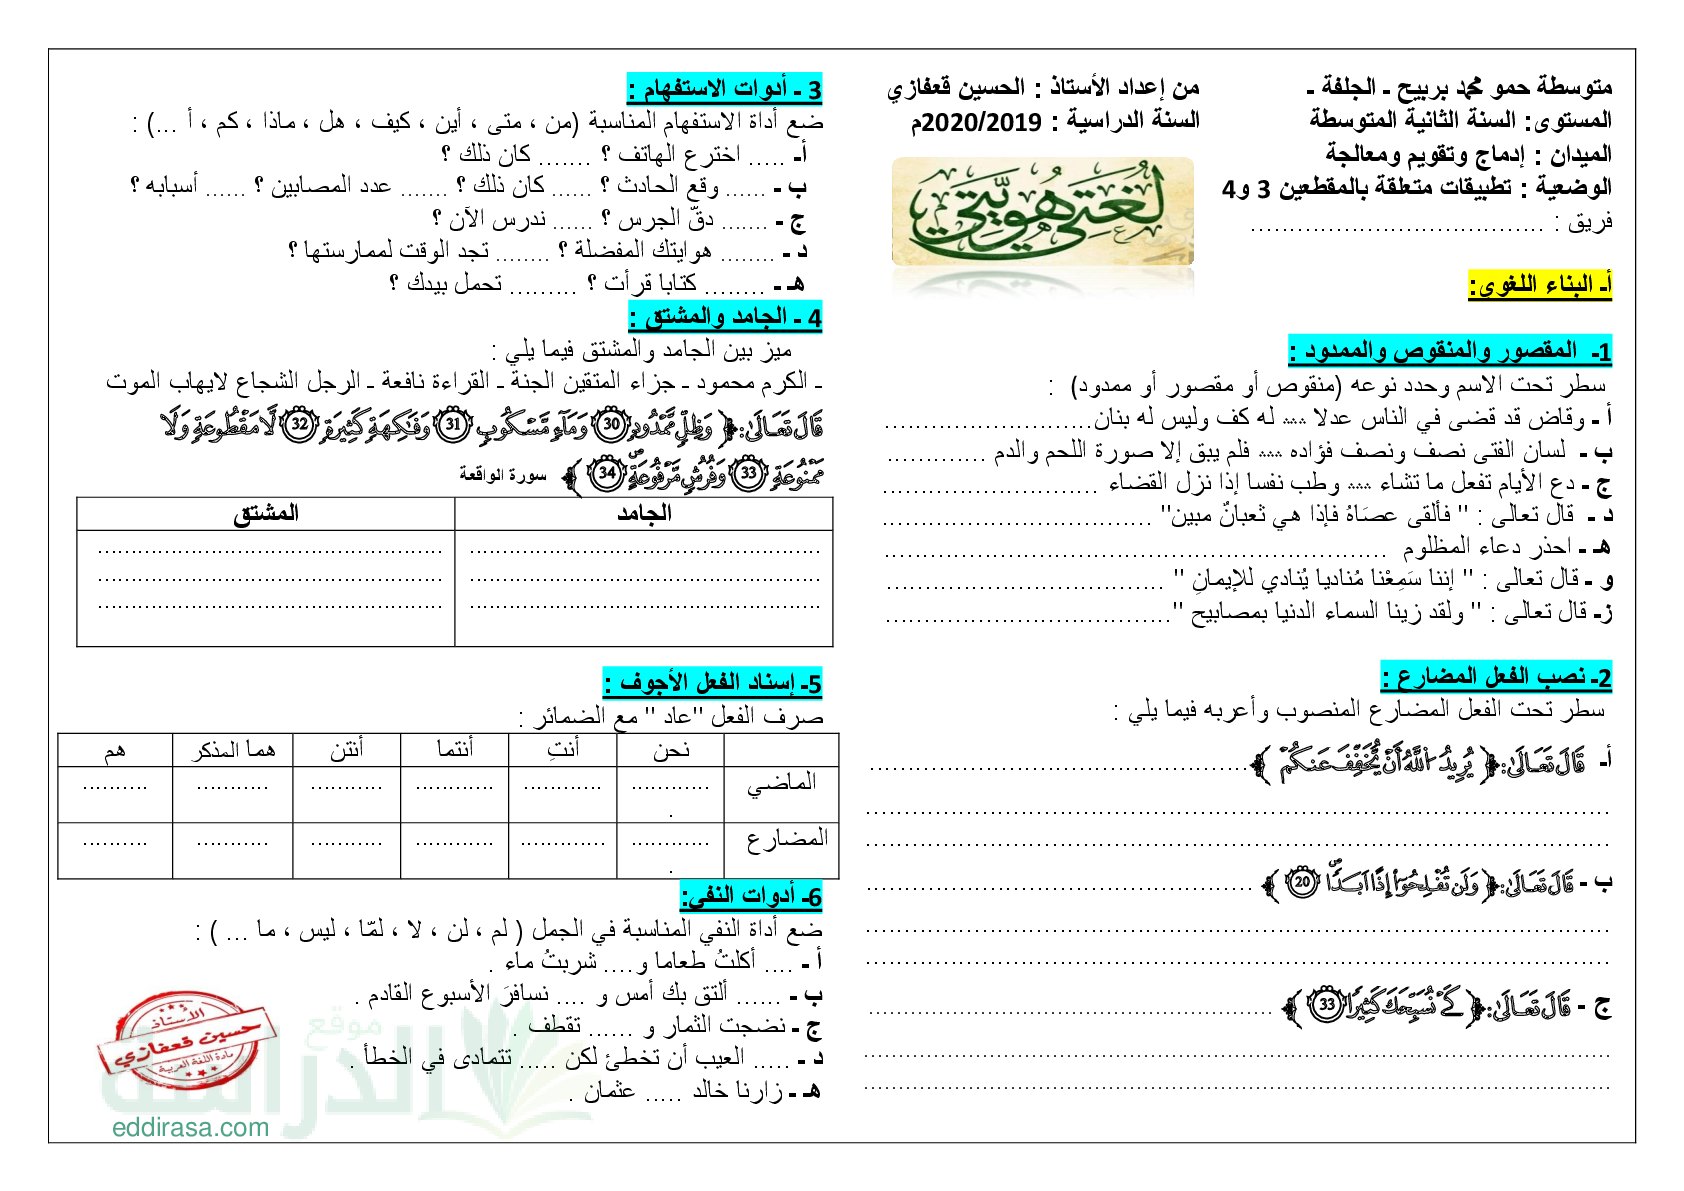 متوسطة حمو محمد بربيح ـ الجلفة ـ
المستوى: السنة الثانية المتوسطة
الميدان : إدماج وتقويم ومعالجة
الوضعية : تطبيقات متعلقة بالمقطعين 3 و4
فريق : ......................................
من إعداد الأستاذ : الحسين قعفازي
السنة الدراسية : 2020/2019م
لغتي هويتي
أـ البناء اللغوي:
1- المقصور والمنقوص والممدود :
سطر تحت الاسم وحدد نوعه (منقوص أو مقصور أو ممدود) :
أ - وقاض قد قضى في الناس عدلا ؞؞؞ له كف وليس له بنان...........................
ب - لسان الفتى نصف ونصف فؤاده ؞؞؞ فلم يبق إلا صورة اللحم والدم .............
ج - دع الأيام تفعل ما تشاء ؞؞؞ وطب نفسا إذا نزل القضاء ............................
د - قال تعالى : " فألقى عصَاهُ فإذا هي ثعبانٌ مبين" ...................................
هـ - احذر دعاء المظلوم .................................................................
و - قال تعالى : " إننا سَمِعْنا مُناديا يُنادي للإيمانِ " ....................................
ز- قال تعالى : " ولقد زينا السماء الدنيا بمصابيح ".....................................
2- نصب الفعل المضارع :
سطر تحت الفعل المضارع المنصوب وأعربه فيما يلي :
أ- قَالَ تَعَالَىٰ: ﴿ يُرِيدُ اللَّهُ أَنْ يُخَفِّفَ عَنكُمْ ﴾ .................................................
................................................................................................
................................................................................................
ب - قَالَ تَعَالَىٰ: ﴿ وَلَن تُفْلِحُوا إِذًا أَبَدًا 20 ﴾ .................................................
................................................................................................
................................................................................................
ج - قَالَ تَعَالَىٰ: ﴿ كَيْ نُسَبِّحَكَ كَثِيرًا 33 ﴾ ....................................................
................................................................................................
................................................................................................
3 - أدوات الاستفهام :
ضع أداة الاستفهام المناسبة (من ، متى ، أين ، كيف ، هل ، ماذا ، كم ، أ ...) :
أ- ..... اخترع الهاتف ؟ ....... كان ذلك ؟
ب - ...... وقع الحادث ؟ ...... كان ذلك ؟ ....... عدد المصابين ؟ ...... أسبابه ؟
ج - ....... دقّ الجرس ؟ ...... ندرس الآن ؟
د - ........ هوايتك المفضلة ؟ ........ تجد الوقت لممارستها ؟
هـ - ........ كتابا قرأت ؟ ......... تحمل بيدك ؟
4 - الجامد والمشتق :
ميز بين الجامد والمشتق فيما يلي :
ـ الكرم محمود ـ جزاء المتقين الجنة ـ القراءة نافعة ـ الرجل الشجاع لايهاب الموت
قَالَ تَعَالَىٰ: ﴿ وَظِلٍّ مَّمْدُودٍ 30 وَمَاءٍ مَّسْكُوبٍ 31 وَفَاكِهَةٍ كَثِيرَةٍ 32 لَّا مَقْطُوعَةٍ وَلَا
مَمْنُوعَةٍ 33 وَفُرُشٍ مَّرْفُوعَةٍ 34 ﴾ سورة الواقعة
الجامد المشتق
.................................................. ..................................................
.................................................. ..................................................
.................................................. ..................................................
5- إسناد الفعل الأجوف :
صرف الفعل "عاد " مع الضمائر :
نحن أنتِ أنتما أنتن هما المذكر هم
الماضي ............. ............. ............ ........... ........... ..........
المضارع ............. ............. ............ ........... ........... ..........
6- أدوات النفي:
ضع أداة النفي المناسبة في الجمل ( لم ، لن ، لا ، لمّا ، ليس ، ما ... ) :
أ - .... أكلتُ طعاما و.... شربتُ ماء .
ب - ...... ألتق بك أمس و .... نسافرَ الأسبوع القادم .
ج - نضجت الثمار و ...... تقطف .
د - ..... العيب أن تخطئ لكن ..... تتمادى في الخطأ .
هـ - زارنا خالد ..... عثمان .
الأستاذ
حسين قعفازي
مادة اللغة العربية
موقع
الدراسة
eddirasa.com